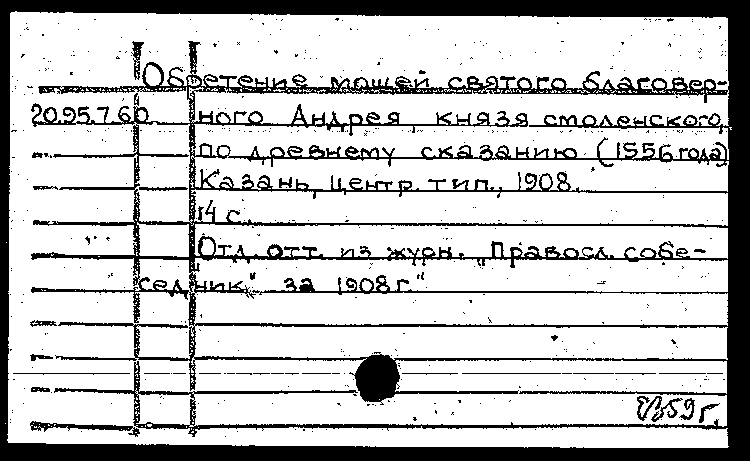 Обретение мощей святого благовер-
20.95.7.60. ного Андрея, князя смоленского,
по древнему сказанию (1556 года)
Казань, центр. тип., 1908.
14 с.
Отд. отт. из журн. „Правосл. собе-
седник" за 1908 г."
59 г.